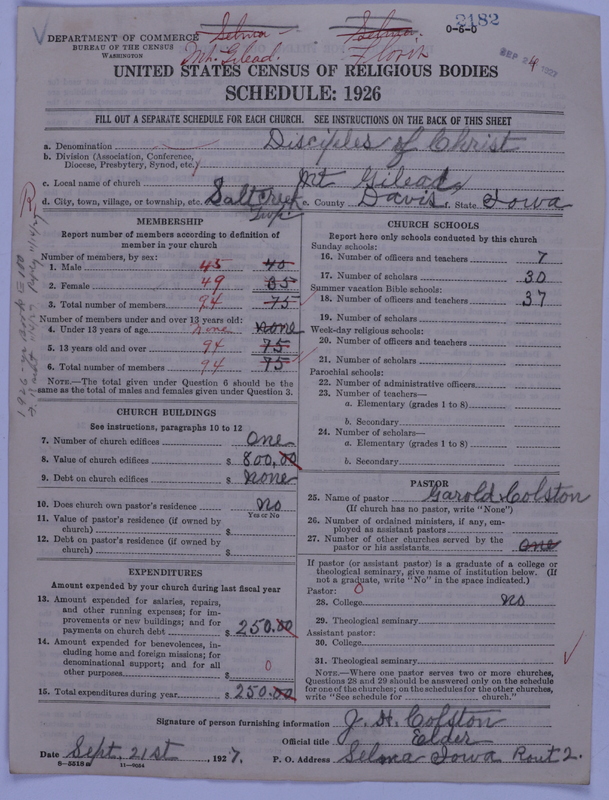 2182
Selma
Selma
0-6-0
DEPARTMENT OF COMMERCE
BUREAU OF THE CENSUS
WASHINGTON
Mt. Gilead.
Floris
SEP 24 1927
UNITED STATES CENSUS OF RELIGIOUS BODIES
SCHEDULE: 1926
FILL OUT A SEPARATE SCHEDULE FOR EACH CHURCH. SEE INSTRUCTIONS ON THE BACK OF THIS SHEET
a. Denomination Disciples of Christ
b. Division (Association, Conference,
Diocese, Presbytery, Synod, etc.)
c. Local name of church Mt Gilead
d. City, town, village, or township, etc. Saltcreek Twp. e. County Davis f. State Iowa
MEMBERSHIP
Report number of members according to definition of
member in your church
Number of members, by sex:
1. Male 45 40
2. Female 49 35
3. Total number of members 94 75
Number of members under and over 13 years old:
4. Under 13 years of age none none
5. 13 years old and over 94 75
6. Total number of members 94 75
NOTE.—The total given under Question 6 should be the
same as the total of males and females given under Question 3.
CHURCH BUILDINGS
See instructions, paragraphs 10 to 12
7. Number of church edifices One
8. Value of church edifices $ 800.00
9. Debt on church edifices $ None
10. Does church own pastor's residence No
Yes or No
11. Value of pastor's residence (if owned by
church) $
12. Debt on pastor's residence (if owned by
church) $
EXPENDITURES
Amount expended by your church during last fiscal year
13. Amount expended for salaries, repairs,
and other running expenses; for im-
provements or new buildings; and for
payments on church debt $ 250.00
14. Amount expended for benevolences, in-
cluding home and foreign missions; for
denominational support; and for all
other purposes $ 0
15. Total expenditures during year $ 250.00
CHURCH SCHOOLS
Report here only schools conducted by this church
Sunday schools:
16. Number of officers and teachers 7
17. Number of scholars 30
Summer vacation Bible schools:
18. Number of officers and teachers 37
19. Number of scholars
Week-day religious schools:
20. Number of officers and teachers
21. Number of scholars
Parochial schools:
22. Number of administrative officers
23. Number of teachers—
a. Elementary (grades 1 to 8)
b. Secondary
24. Number of scholars—
a. Elementary (grades 1 to 8)
b. Secondary
PASTOR
25. Name of pastor Garold Colston
(If church has no pastor, write "None")
26. Number of ordained ministers, if any, em-
ployed as assistant pastors
27. Number of other churches served by the
pastor or his assistants One
If pastor (or assistant pastor) is a graduate of a college or
theological seminary, give name of institution below. (If
not a graduate, write "No" in the space indicated.)
Pastor: 0
28. College No
29. Theological seminary
Assistant pastor:
30. College
31. Theological seminary
NOTE.—Where one pastor serves two or more churches,
Questions 28 and 29 should be answered only on the schedule
for one of the churches; on the schedules for the other churches,
write "See schedule for church."
Signature of person furnishing information J. H. Colston
Official title Elder
Date Sept. 21st, 1927. P. O. Address Selma Iowa Rout 2.
8-5518 11-9034